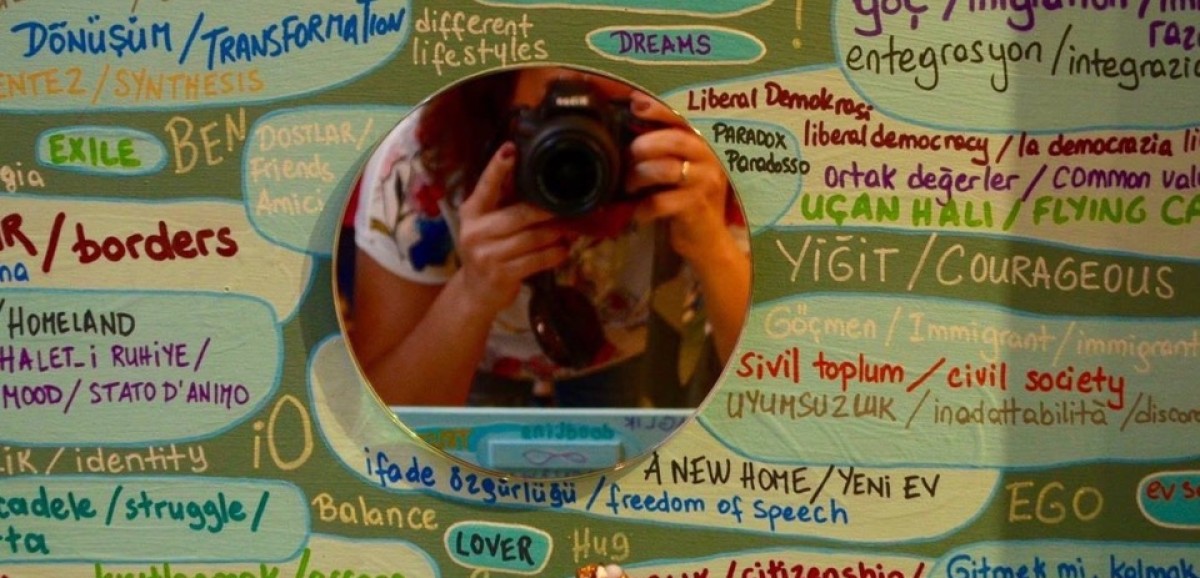 DÖNÜŞÜM / TRANSFORMATION
different
lifestyles
DREAMS
göç / migration /
entegrasyon / integrazio
ENTEZ / SYNTHESIS
EXILE
BEN
DOSTLAR /
Friends
Amici
gia
Liberal Demokrasi
liberal democracy / la democrazia li
PARADOX
Paradosso
ortak değerler / common valu
UÇAN HALI / FLYING CA
R / borders
na
YİĞİT / COURAGEOUS
HOMELAND
HALET-İ RUHİYE /
MOOD / STATO D'ANIMO
Göçmen / Immigrant / immigrant
sivil toplum / civil society
UYUMSUZLUK / inadattabilità / discon
iO
LİK / identity
ifade özgürlüğü / freedom of speech
A NEW HOME / YENİ EV
EGO
ev s
cadele / struggle /
ta
Balance
LOVER
Hug
/ citizenship /
Gitmek mi, kalmak